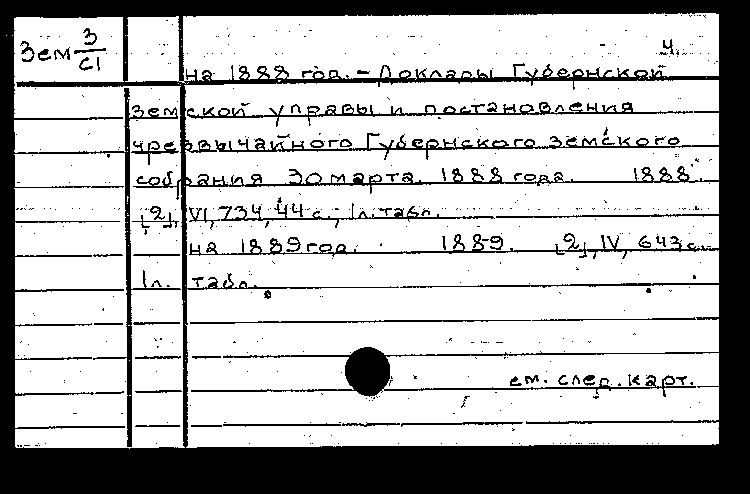 Зем 3/С1
4.
на 1888 год. – Доклады Губернской
земской управы и постановления
чрезвычайного Губернского земского
собрания 30 марта 1888 года. 1888.
[2], VI, 734, 44 с., 1 л. табл.
на 1889 год. 1889. [2], IV, 643 с.
1 л. табл.
см. след. карт.